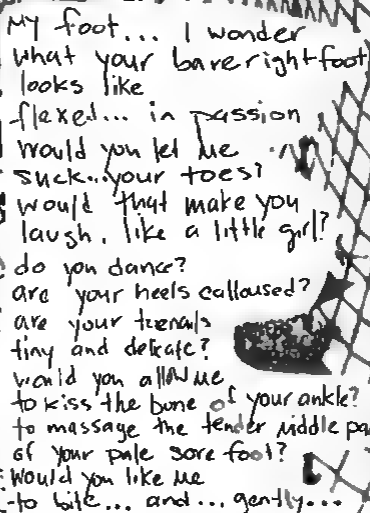 My foot... I wonder
what your bare right foot
looks like
flexed... in passion
Would you let me
suck...your toes?
would that make you
laugh, like a little girl?
do you dance?
are your heels calloused?
are your toenails
tiny and delicate?
would you allow me
to kiss the bone of your ankle?
to massage the tender middle pa
of your pale sore foot?
Would you like me
to bite... and... gently...